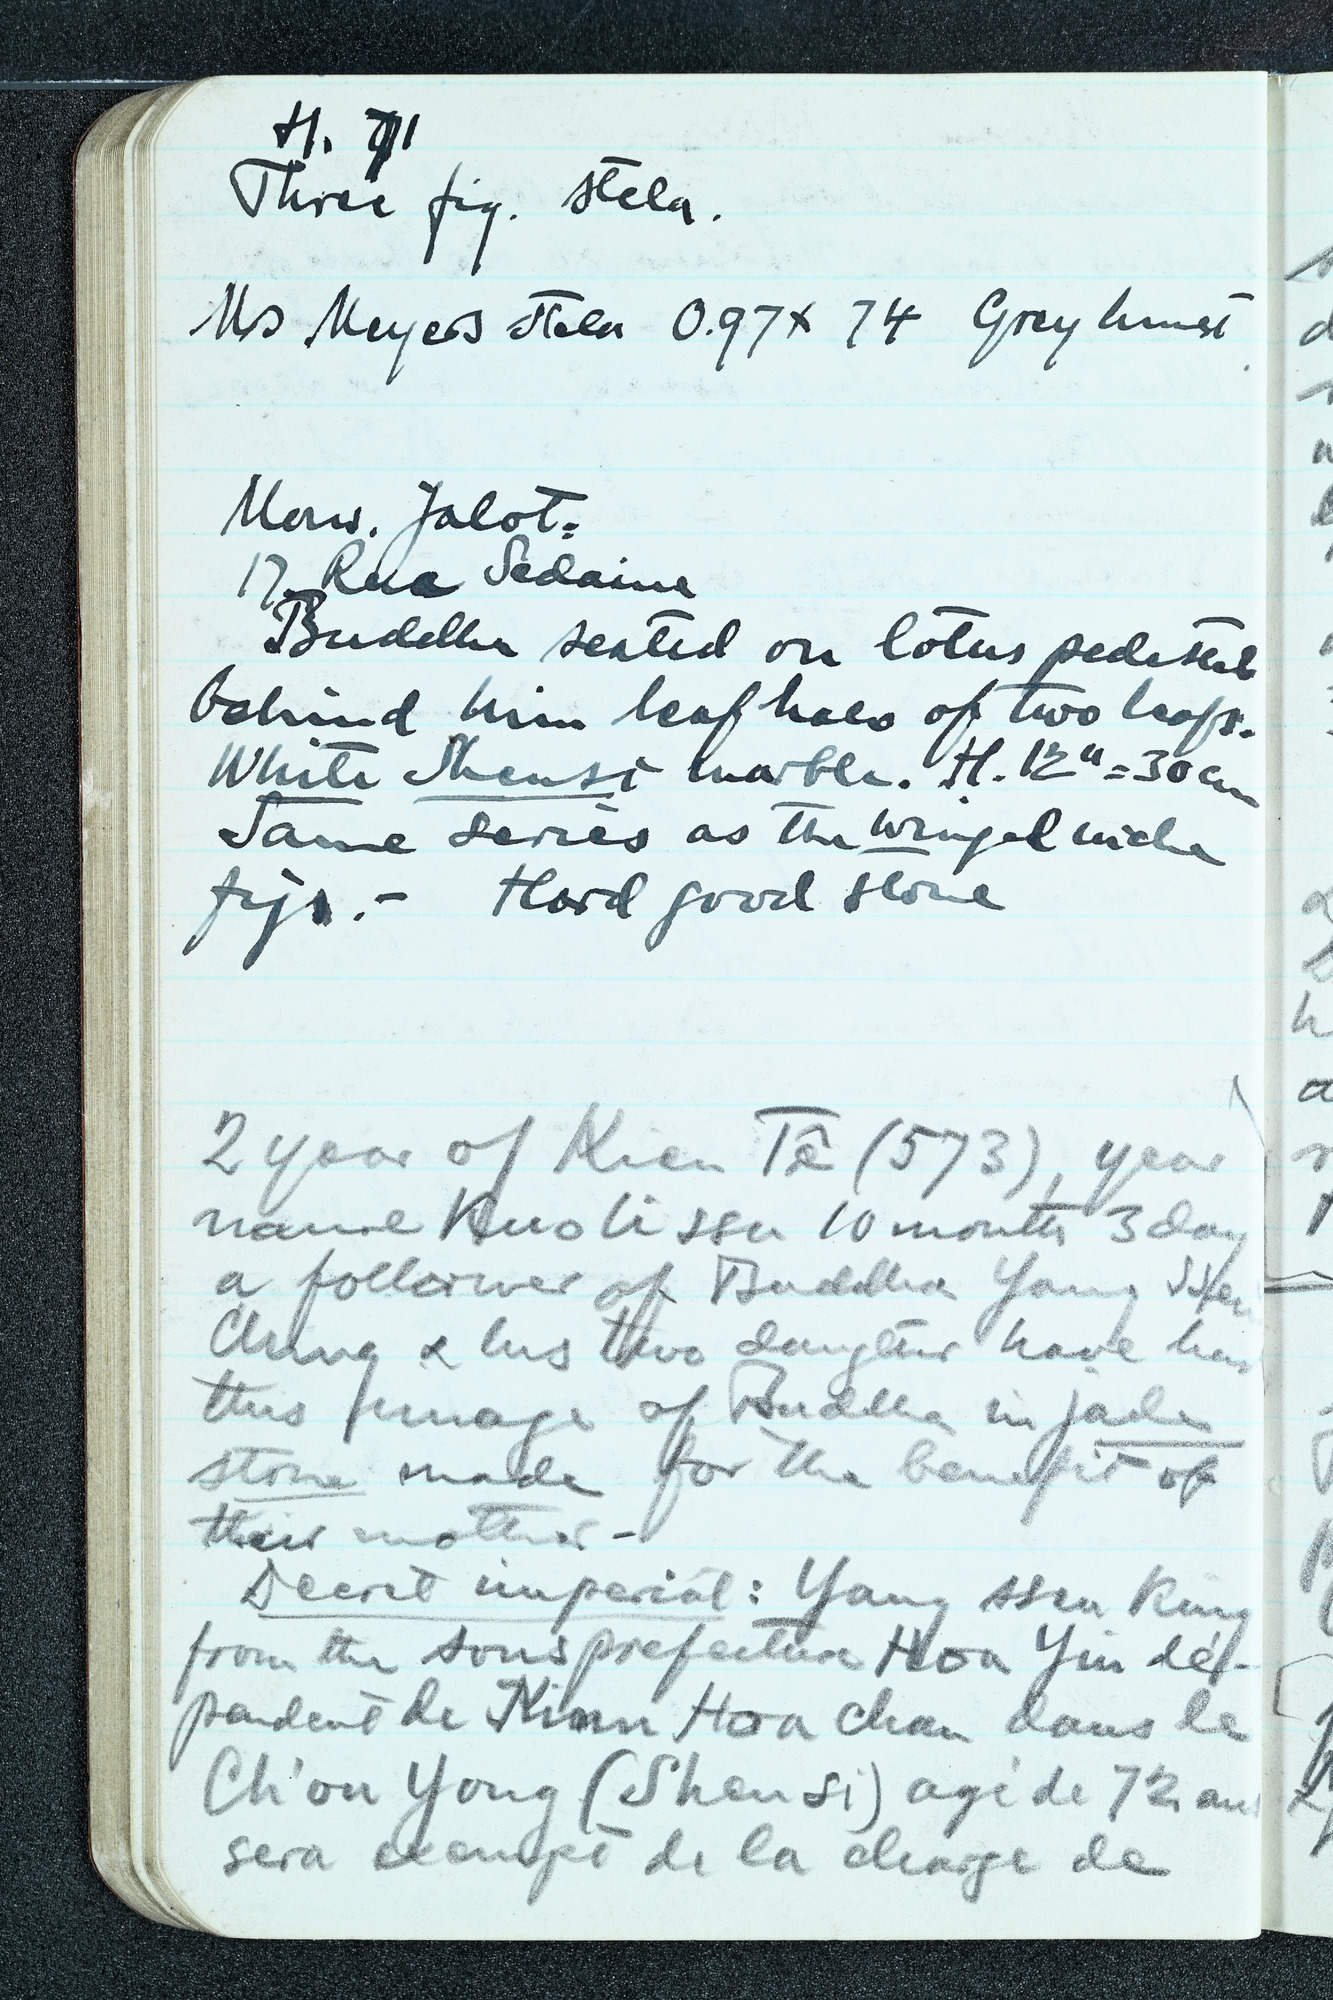 H. 71
Three fig. stela.
Mrs Meyers stela 0.97 x 74 Grey limest.
Mons. Jalot:
17. Rue Sedaine
Buddha seated on lotus pedestal
behind him leaf halo of two leafs.
White Shensi marble. H. 12" = 30 cm
Same series as the winged niche
figs. - Hard good stone
2 year of Kien Tê (573), year
name Kuo li ssu 10 month 3 day
a follower of Buddha Yang ssen
Ching & his two daughters have had
this image of Buddha in jade
stone made for the benefit of
their mother -
Decret imperial: Yang ssen King
from the sousprefecture Hoa Yin dé-
pendent de Hoa chan dans le
Ch'ou Yong (Shensi) agé de 72 ans
sera exempt de la charge de